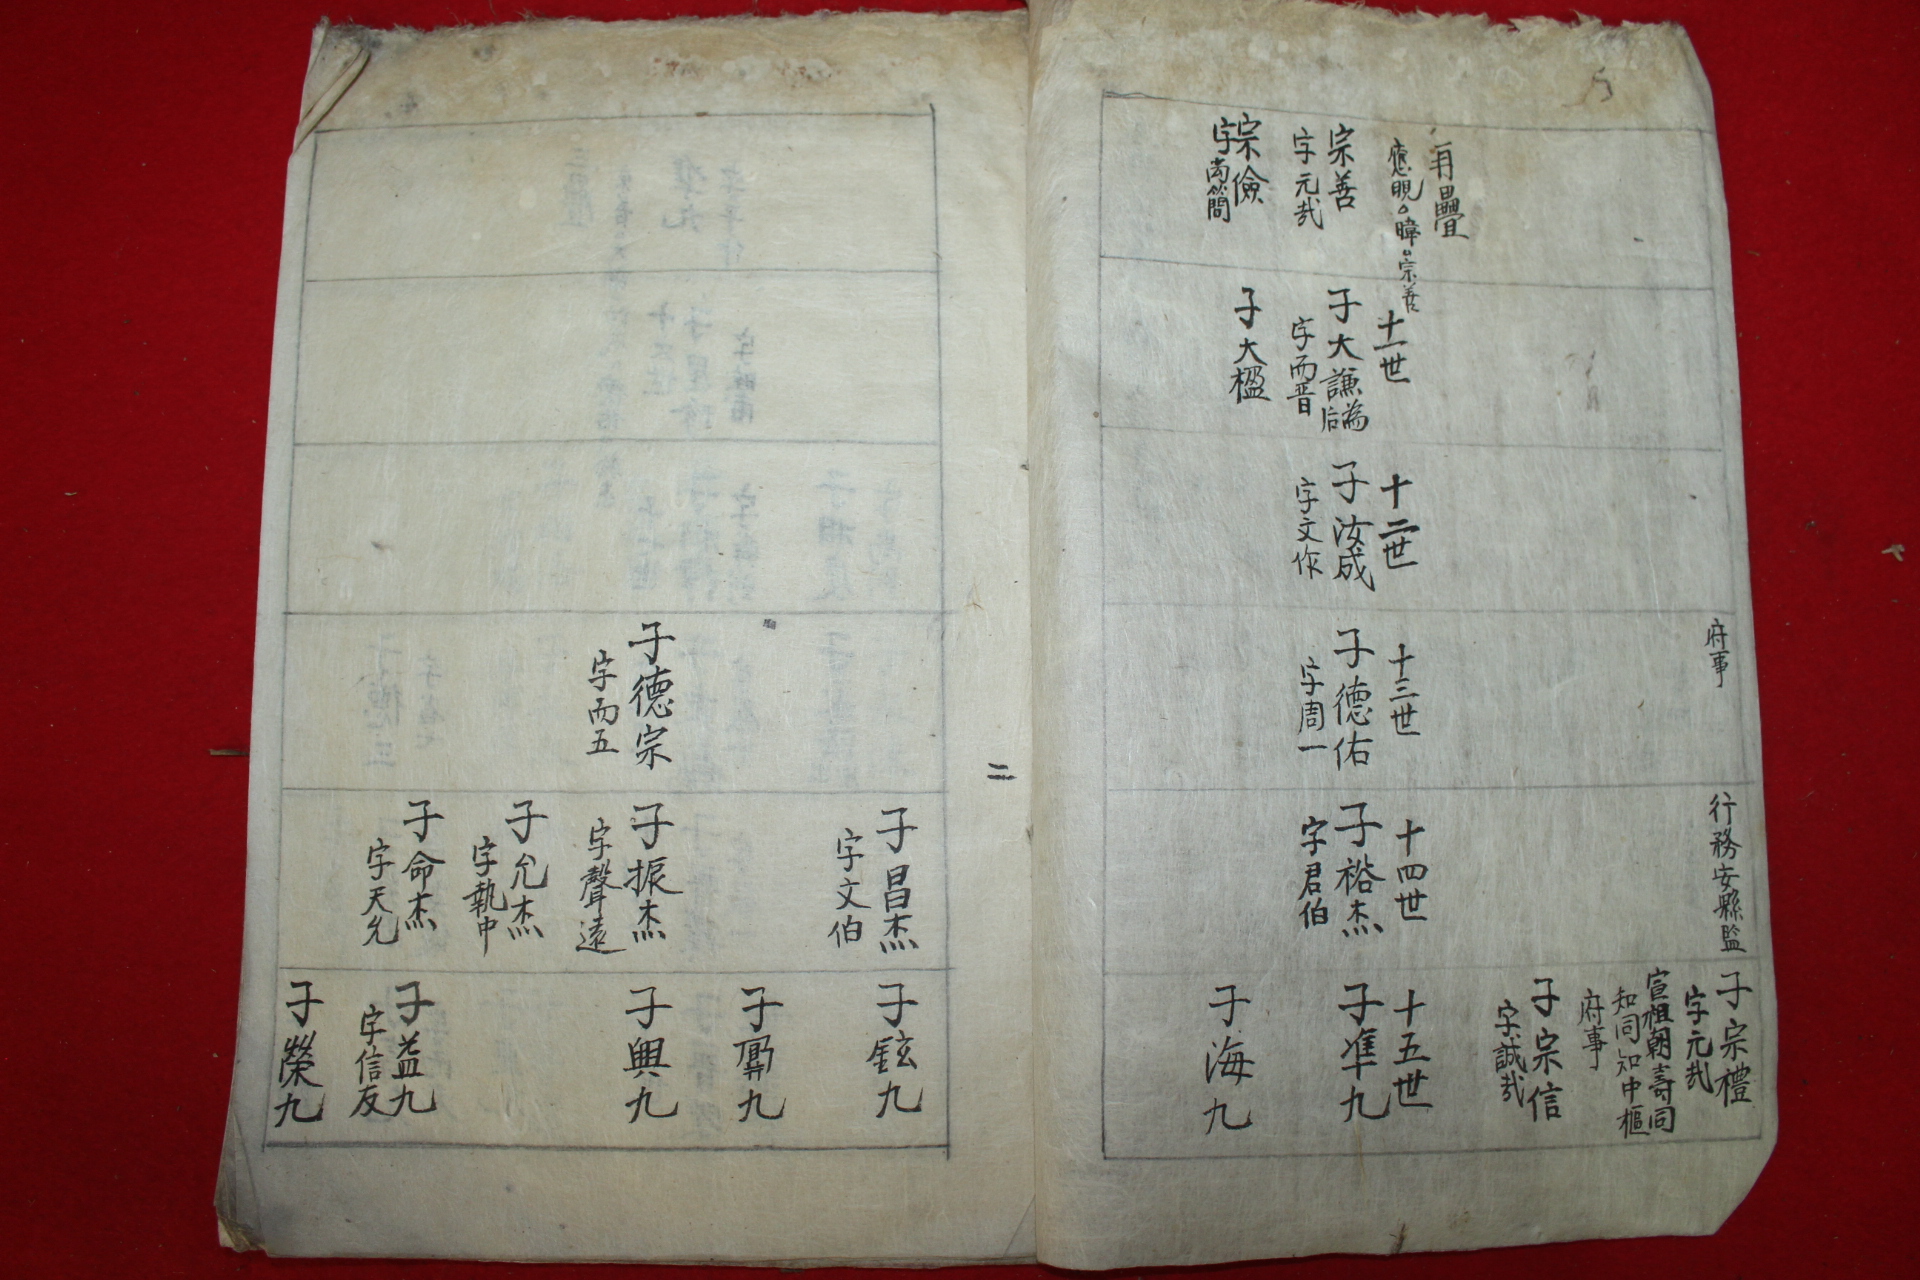 府事
行務安縣監
子宗禮
字元哉
宣祖朝壽同
知同知中樞
府事
子宗信
字誠哉
再疊
應晛 暐 宗善
宗善
字元哉
宗儉
字尚簡
十一世
子大謙為后
字而晋
子大楹
十二世
子汝成
字文作
十三世
子德佑
字周一
十四世
子裕杰
字君伯
十五世
子準九
子海九
二
子德宗
字而五
子昌杰
字文伯
子振杰
字聲遠
子允杰
字執中
子命杰
字天允
子鉉九
子鼏九
子興九
子益九
字信友
子榮九